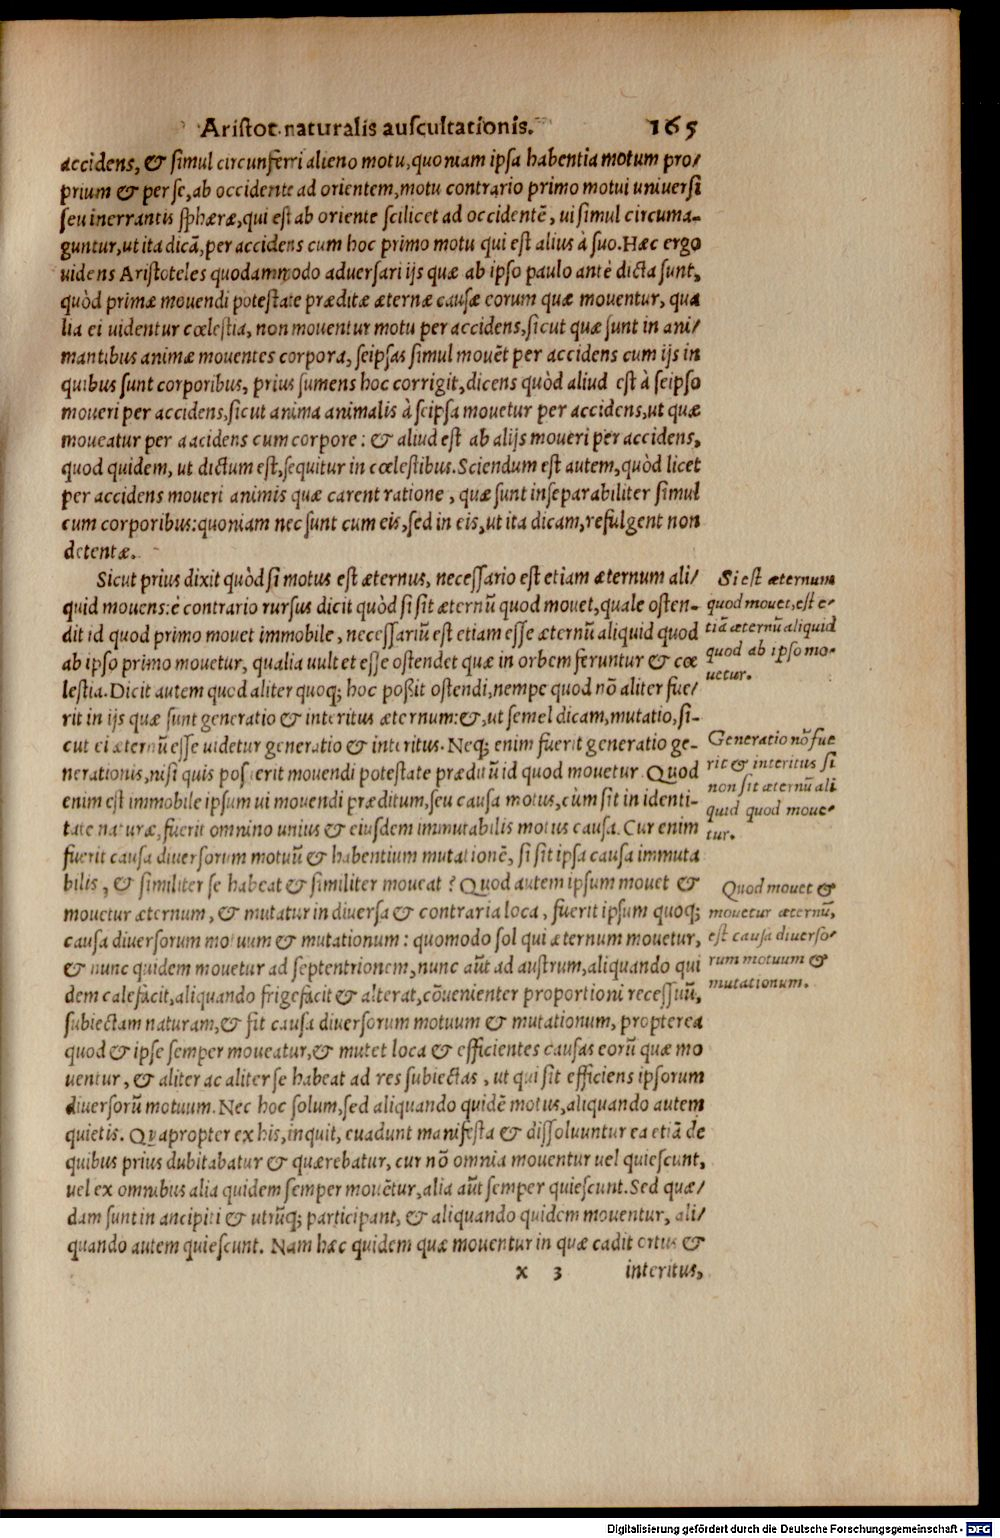 Aristot. naturalis auscultationis. 165
accidens, & simul circunferri alieno motu, quoniam ipsa habentia motum pro/
prium & per se, ab occidente ad orientem, motu contrario primo motui universi
seu inerrantis sphæræ, qui est ab oriente scilicet ad occidentē, ui simul circuma-
guntur, ut ita dicā, per accidens cum hoc primo motu qui est alius à suo. Hæc ergo
uidens Aristoteles quodammodo adversari ijs quæ ab ipso paulo antè dicta sunt,
quòd primæ movendi potestate præditæ æternæ causæ eorum quæ moventur, qua
lia ei uidentur cœlestia, non moventur motu per accidens, sicut quæ sunt in ani/
mantibus animæ moventes corpora, seipsas simul movēt per accidens cum ijs in
quibus sunt corporibus, prius sumens hoc corrigit, dicens quòd aliud est à seipso
moveri per accidens, sicut anima animalis à seipsa movetur per accidens, ut quæ
moveatur per aacidens cum corpore: & aliud est ab alijs moveri per accidens,
quod quidem, ut dictum est, sequitur in cœlestibus. Sciendum est autem, quòd licet
per accidens moveri animis quæ carent ratione, quæ sunt inseparabiliter simul
cum corporibus: quoniam nec sunt cum eis, sed in eis, ut ita dicam, refulgent non
detentæ.
Sicut prius dixit quòd si motus est æternus, necessario est etiam æternum ali/
quid movens: è contrario rursus dicit quòd si sit æternū quod movet, quale osten-
dit id quod primo movet immobile, necessariū est etiam esse æternū aliquid quod
ab ipso primo movetur, qualia uult et esse ostendet quæ in orbem feruntur & cœ
lestia. Dicit autem quod aliter quoq; hoc poßit ostendi, nempe quod nō aliter fue/
rit in ijs quæ sunt generatio & interitus æternum: &, ut semel dicam, mutatio, si-
cut ei æternū esse uidetur generatio & interitus. Neq; enim fuerit generatio ge-
nerationis, nisi quis poserit movendi potestate præditū id quod movetur. Quod
enim est immobile ipsum ui movendi præditum, seu causa motus, cùm sit in identi-
tate naturæ, fuerit omnino unius & eiusdem immutabilis motus causa. Cur enim
fuerit causa diversorum motuū & habentium mutationē, si sit ipsa causa immuta
bilis, & similiter se habeat & similiter moveat? Quod autem ipsum movet &
movetur æternum, & mutatur in diversa & contraria loca, fuerit ipsum quoq;
causa diversorum motuum & mutationum: quomodo sol qui æternum movetur,
& nunc quidem movetur ad septentrionem, nunc aūt ad austrum, aliquando qui
dem calefacit, aliquando frigefacit & alterat, cōvenienter proportioni recessuū,
subiectam naturam, & fit causa diversorum motuum & mutationum, propterea
quod & ipse semper moveatur, & mutet loca & efficientes causas eorū quæ mo
ventur, & aliter ac aliter se habeat ad res subiectas, ut qui sit efficiens ipsorum
diversorū motuum. Nec hoc solum, sed aliquando quidē motus, aliquando autem
quietis. Quapropter ex his, inquit, evadunt manifesta & dissoluuntur ea etiā de
quibus prius dubitabatur & quærebatur, cur nō omnia moventur uel quiescunt,
uel ex omnibus alia quidem semper movētur, alia aūt semper quiescunt. Sed quæ/
dam sunt in ancipiti & utrūq; participant, & aliquando quidem moventur, ali/
quando autem quiescunt. Nam hæc quidem quæ moventur in quæ cadit ortus &
x 3 interitus,
Si est æternum
quod movet, est e-
tiā æternū aliquid
quod ab ipso mo-
uetur.
Generatio nō fue
rit & interitus si
non sit æternū ali
quid quod move-
tur.
Quod movet &
movetur æternū,
est causa diverso-
rum motuum &
mutationum.
Digitalisierung gefördert durch die Deutsche Forschungsgemeinschaft - DFG